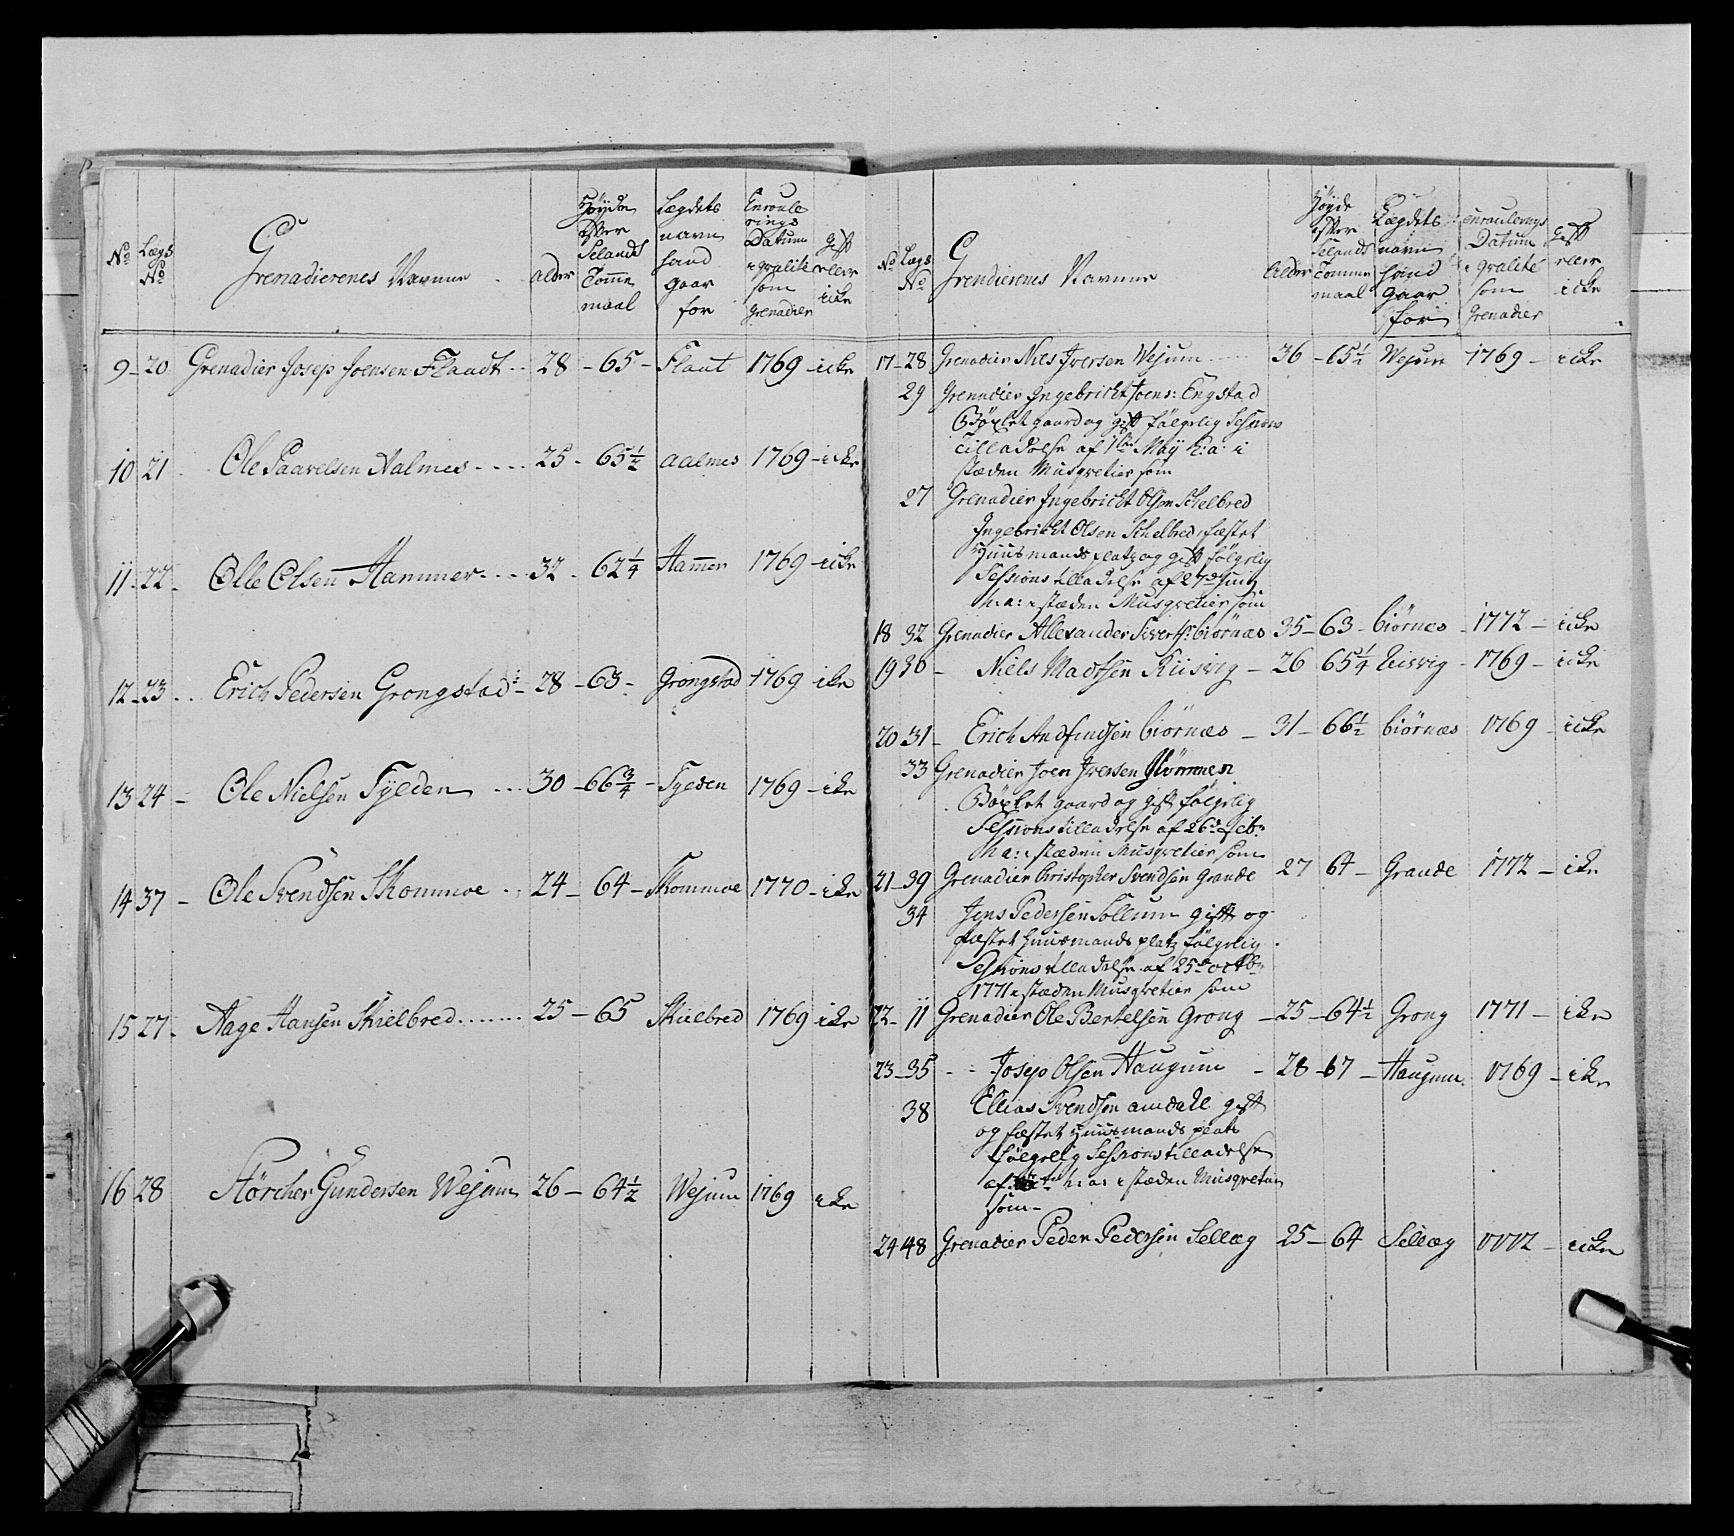 No
Lægs No
Grenadierenes Navnne
Alder
Høyden efter Selands Tomme maal
Lægdets navn hand gaar for
Enroulerings Datum i qvalité som Grenadier
gift eller icke
9 - 20 Grenadier Josep Joensen Flaadt - 28 - 65 - Flaat 1769 - icke
10 21 Ole Paavelsen Aalmes - 25 - 65 1/2 Aalmes 1769 - icke
11 - 22 - Olle Olsen Hammer - 32 - 62 1/4 Hammer 1769 - icke
12 - 23 Erich Pedersen Grongstad - 28 - 63 - Grongstad 1769 - icke
13 24 - Ole Nielsen Fylden - 30 - 66 3/4 - Fylden 1769 - icke
14 37 - Ole Svendsen Skommoe - 24 - 64 - Skommoe 1770 - icke
15 27 - Aage Hansen Skielbred - 25 - 65 Skielbred 1769 icke
16 28 Störcher Gundersen Wejum 26 - 64 1/2 Wejum 1769 icke
No
Lægs No
Grendierenes Navnne
Alder
Høyde efter Selands Tomme maal
Lægdets navn hand gaar for
Enroulerings Datum i qvalité som Grenadier
gift eller icke
17 - 28 Grenadier Niels Iversen Wejum 36 - 65 1/2 Wejum 1769 - icke
29 Grenadier Ingebricht Joens: Engstad
Böxlet gaard og gift følgelig Sessions
Tilladelse af 1te May h: a: i
stæden Musqvetier som
27 Grenadier Ingebricht Olsen Skelbred
Ingebricht Olsen Skelbred fæstet
Huusmands platz og gift følgelig
Sessions tilladelse af 27de Juny
h: a: i stæden Musqvetier som
18 32 Grenadier Allexander Siverts: biörnes 35 - 63 - biörnes - 1772 - icke
19 36 - Niels Madtsen Riisvig - 26 65 1/4 Riisvig - 1769 - icke
20 31 - Erich Andfindsen biörnæs - 31 - 66 1/2 biörnæs 1769 - icke
33 Grenadier Joen Iversen
Böxlet gaard og gift følgelig
Sessions tilladelse af 26de Feb:
h: a: i stæden Musqvetier som
21 - 39 Grenadier Christopher Svendsen Grande 27 64 - Grande 1772 - icke
34 Jens Pedersen Sollum gift og
fæstet huusmands platz følgelig
Sessions tilladelse af 25de octb:
1771 i stæden Musqvetier som
22 - 11 Grenadier Ole Bertelsen Grong - 25 - 64 1/2 Grong 1771 - icke
23 - 35 - Josep Olsen Haugum - 28 - 67 - Haugum 1769 - icke
38 Ellias Svendsen amdahl gift
og fæstet Huusmands plats
følgelig Sessions tilladelse
af h: a: i stæden Musqvetier
som -
24 48 Grenadier Peder Pedersen Sellæg 25 - 64 Sellæg 1772 - icke